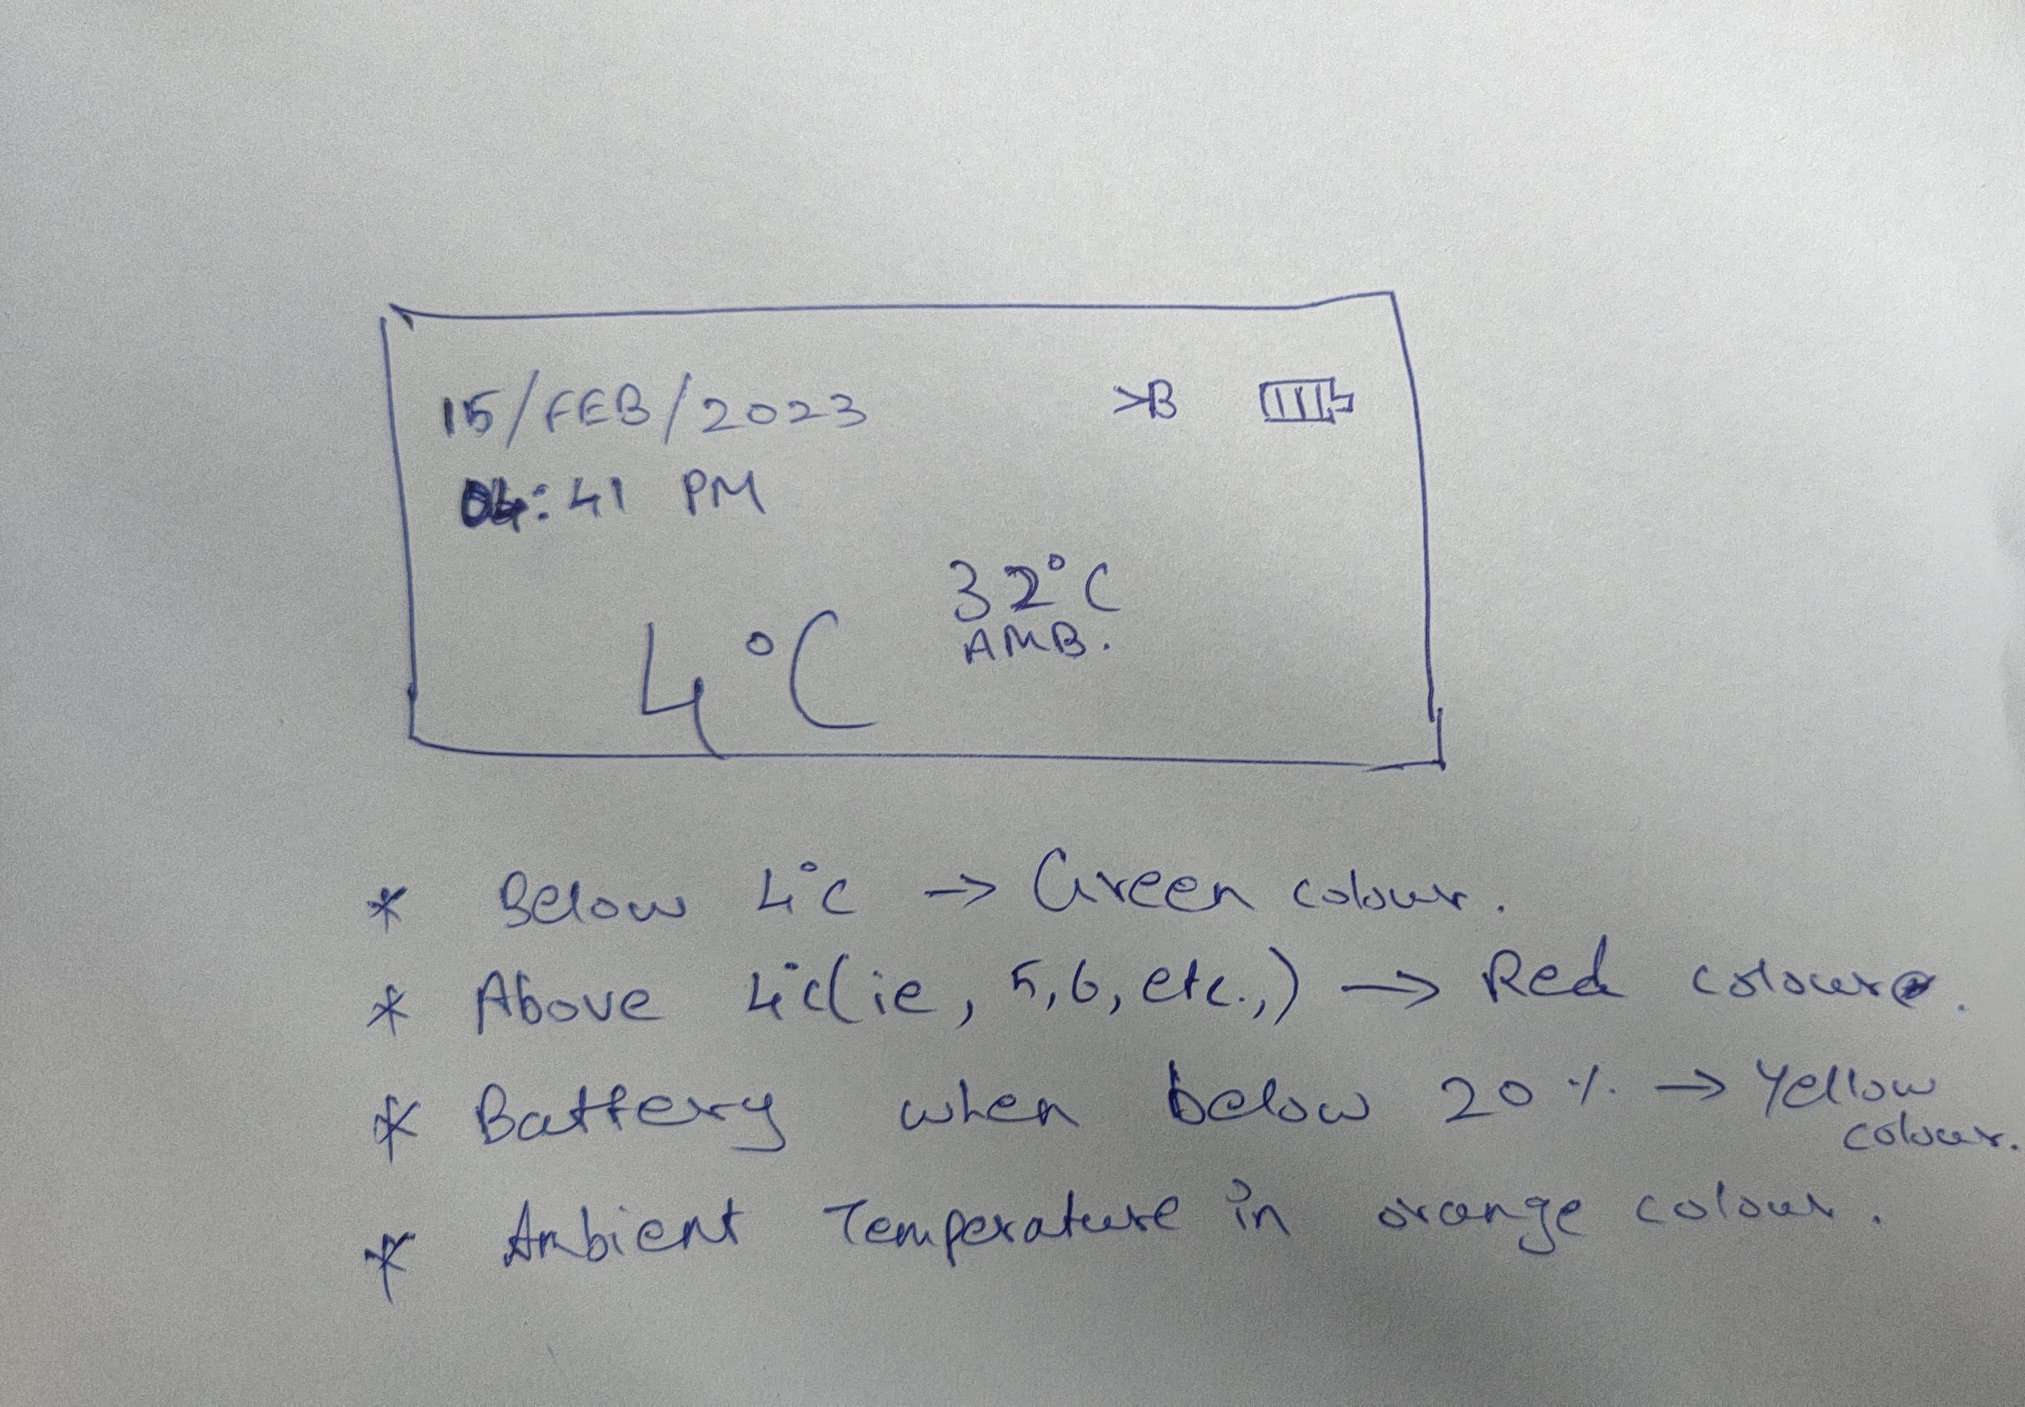 15/FEB/2023
04:41 PM
32°C
AMB.
4°C
* Below 4°C → Green colour.
* Above 4°C (ie, 5,6, etc.,) → Red colour.
* Battery when below 20 % → Yellow
colour.
* Ambient Temperature in orange colour.